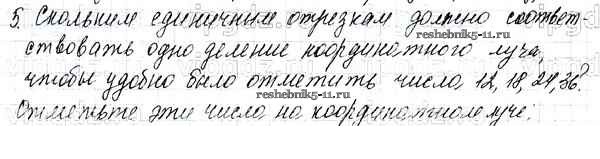 5. Скольким единичным отрезкам должно соответ-
ствовать одно деление координатного луча,
чтобы удобно было отметить числа 12, 18, 24, 36?
Отметьте эти числа на координатном луче.
reshebnik5-11.ru
reshebnik5-11.ru